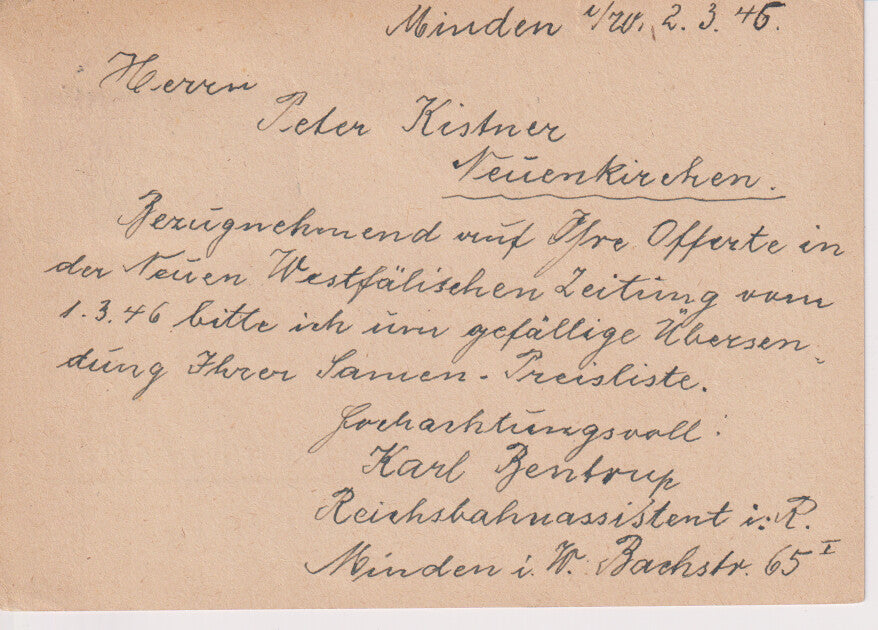 Minden i/W. 2.3.46.
Herrn
Peter Kistner
Neuenkirchen.
Bezugnehmend auf Ihre Offerte in
der Neuen Westfälischen Zeitung vom
1.3.46 bitte ich um gefällige Übersen-
dung Ihrer Samen-Preisliste.
Hochachtungsvoll!
Karl Bentrup
Reichsbahnassistent i.R.
Minden i.W. Bachstr. 65 I